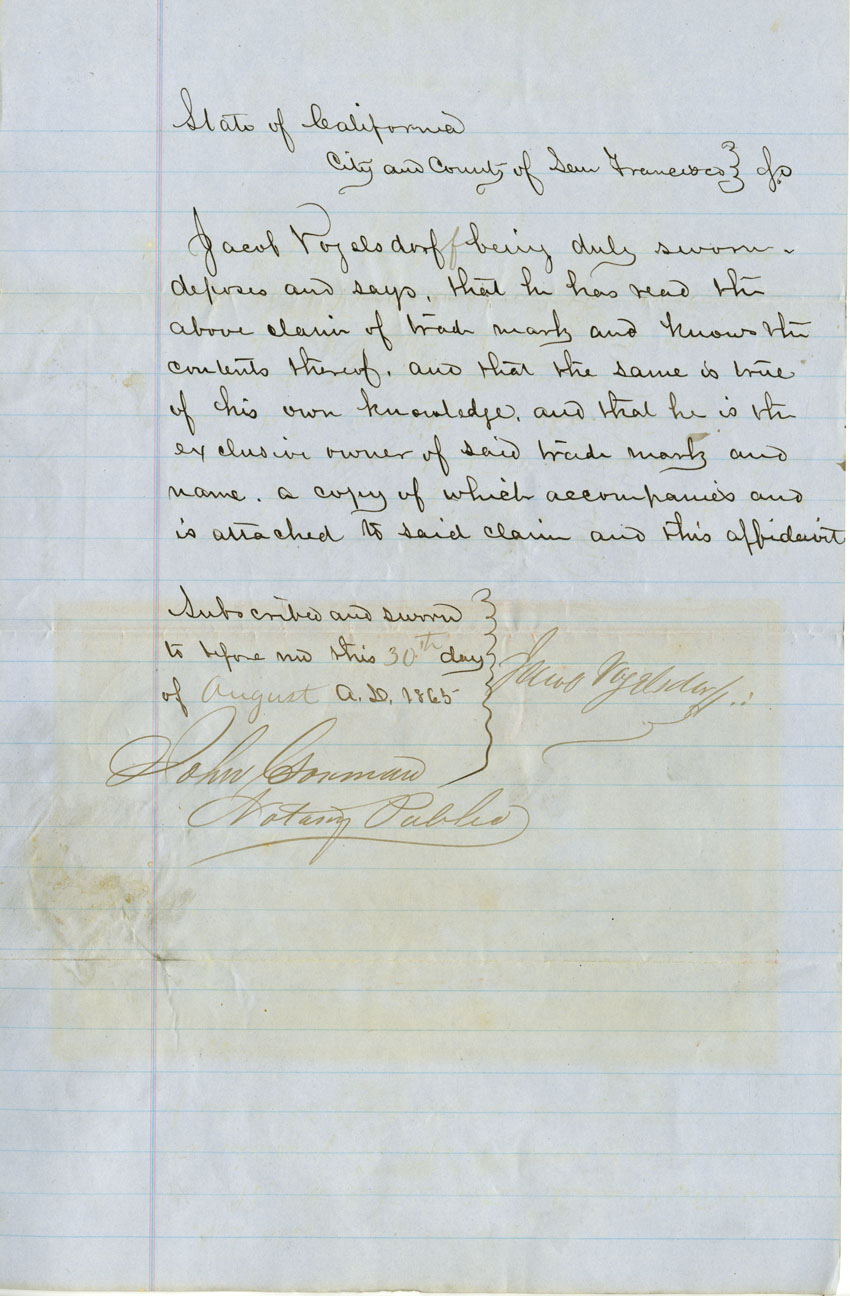 State of California
City and County of San Francisco } ss
Jacob Vogelsdorff being duly sworn -
deposes and says, that he has read the
above claim of trade mark and knows the
contents thereof, and that the same is true
of his own knowledge, and that he is the
exclusive owner of said trade mark and
name. a copy of which accompanies and
is attached to said claim and this affidavit
Subscribed and sworn
to before me this 30th day
of August A.D. 1865
Jacob Vogelsdorff
John Gorman
Notary Public